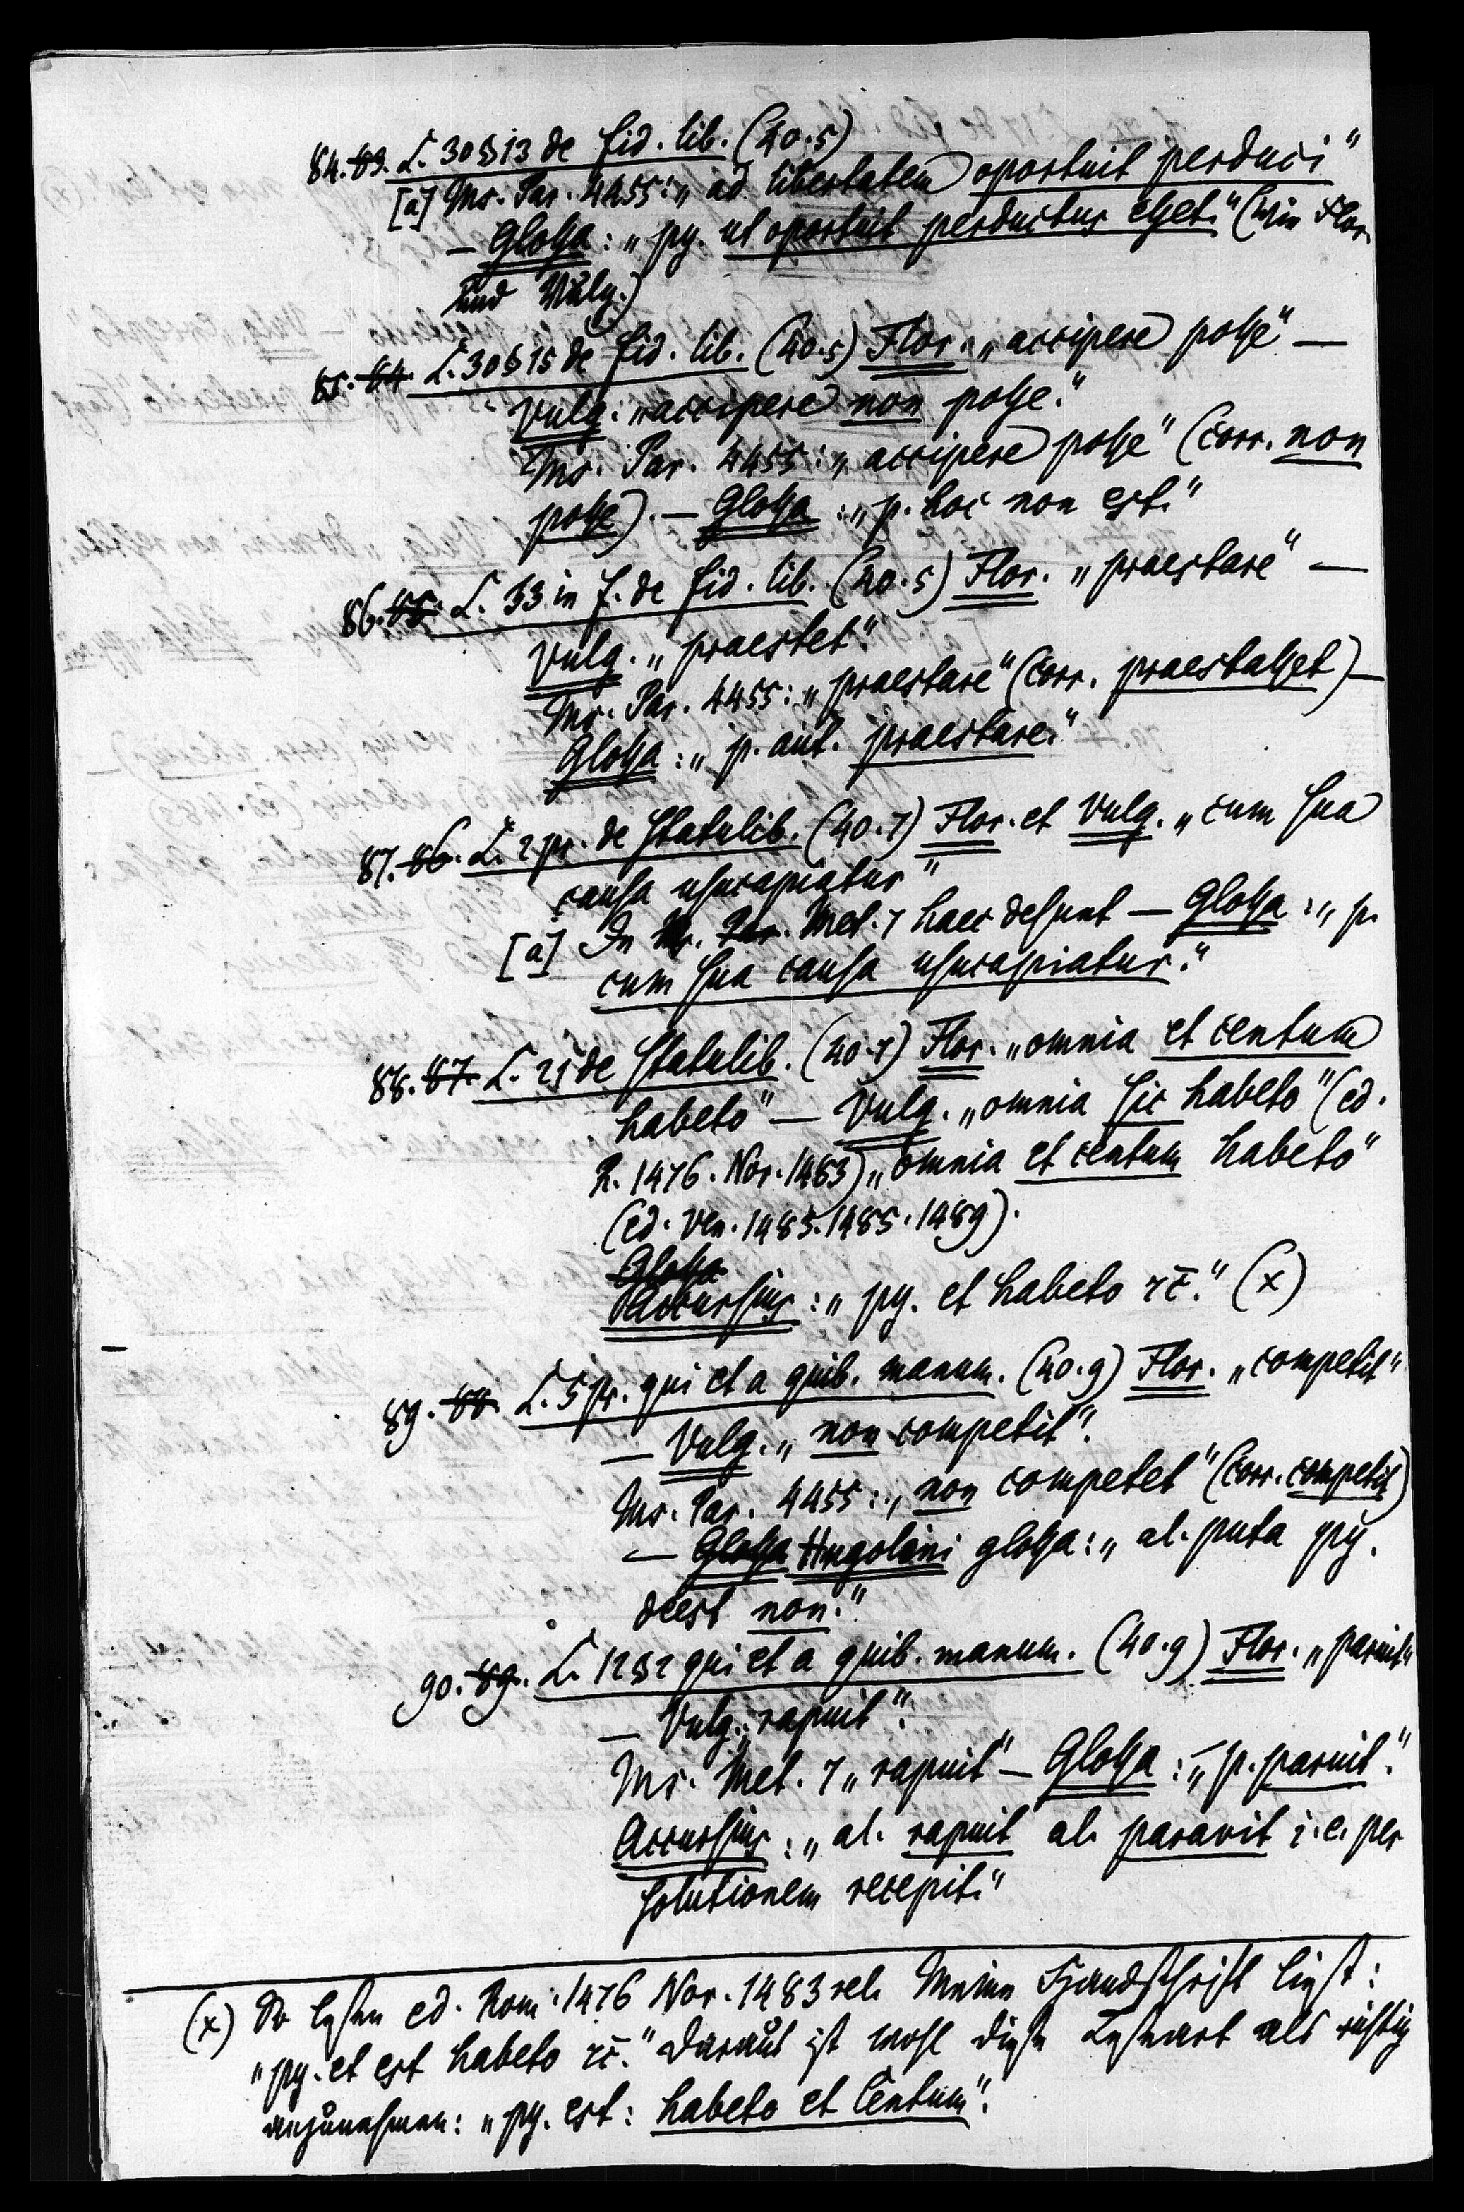 84. 83. L. 30 § 13 de fid. lib. (40.5)
[a] Ms. Par. 4455: „ad libertatem oportuit perduci“
— Glossa: „py. ut oportuit perductus esset.“ (wie Flor.
und Vulg.)
85. 84. L. 30 § 15 de fid. lib. (40.5) Flor. „accipere posse“ —
Vulg. „accipere non posse.“
Ms. Par. 4455: „accipere posse“ (corr. non
posse). — Glossa: „p. hoc non est.“
86. 85. L. 33 in f. de fid. lib. (40.5) Flor. „praestare“ —
Vulg. „praestet.“
Ms. Par. 4455: „praestare“ (corr. praestasset) —
Glossa: „p. aut. praestare.“
87. 86. L. 2 pr. de statulib. (40.7) Flor. et Vulg. „cum sua
causa usucapiatur“
[a] In Ms. Par. Met. 7 haec desunt — Glossa: „p.
cum sua causa usucapiatur.“
88. 87. L. 25 de statulib. (40.7) Flor. „omnia et centum
habeto“ — Vulg. „omnia sic habeto“ (ed.
R. 1476. Nor. 1483) „omnia et centum habeto“
(ed. Ven. 1483. 1485. 1489).
Glossa
Accursius: „py. et habeto rc̄.“ (x)
89. 88. L. 5 pr. qui et a quib. manum. (40.9) Flor. „competit“
— Vulg. „non competit“.
Ms. Par. 4455: „non competet“ (corr. competit)
— Glossa Hugolini glossa: „al. puta py.
deest non.“
90. 89. L. 12 § 2 qui et a quib. manum. (40.9) Flor. „paruit“
— Vulg. „rapuit“.
Ms. Met. 7 „rapuit“ — Glossa: „p. paruit.“
Accursius: „al. rapuit al. paravit i.e. per
solutionem recepit.“
(x) So lesen ed. Rom. 1476 Nor. 1483 rel. Meine Handschrift liest:
„py. et est habeto rc̄.“ Daraus ist wohl diese Leseart als richtig
anzunehmen: „py. est: habeto et Centum“.